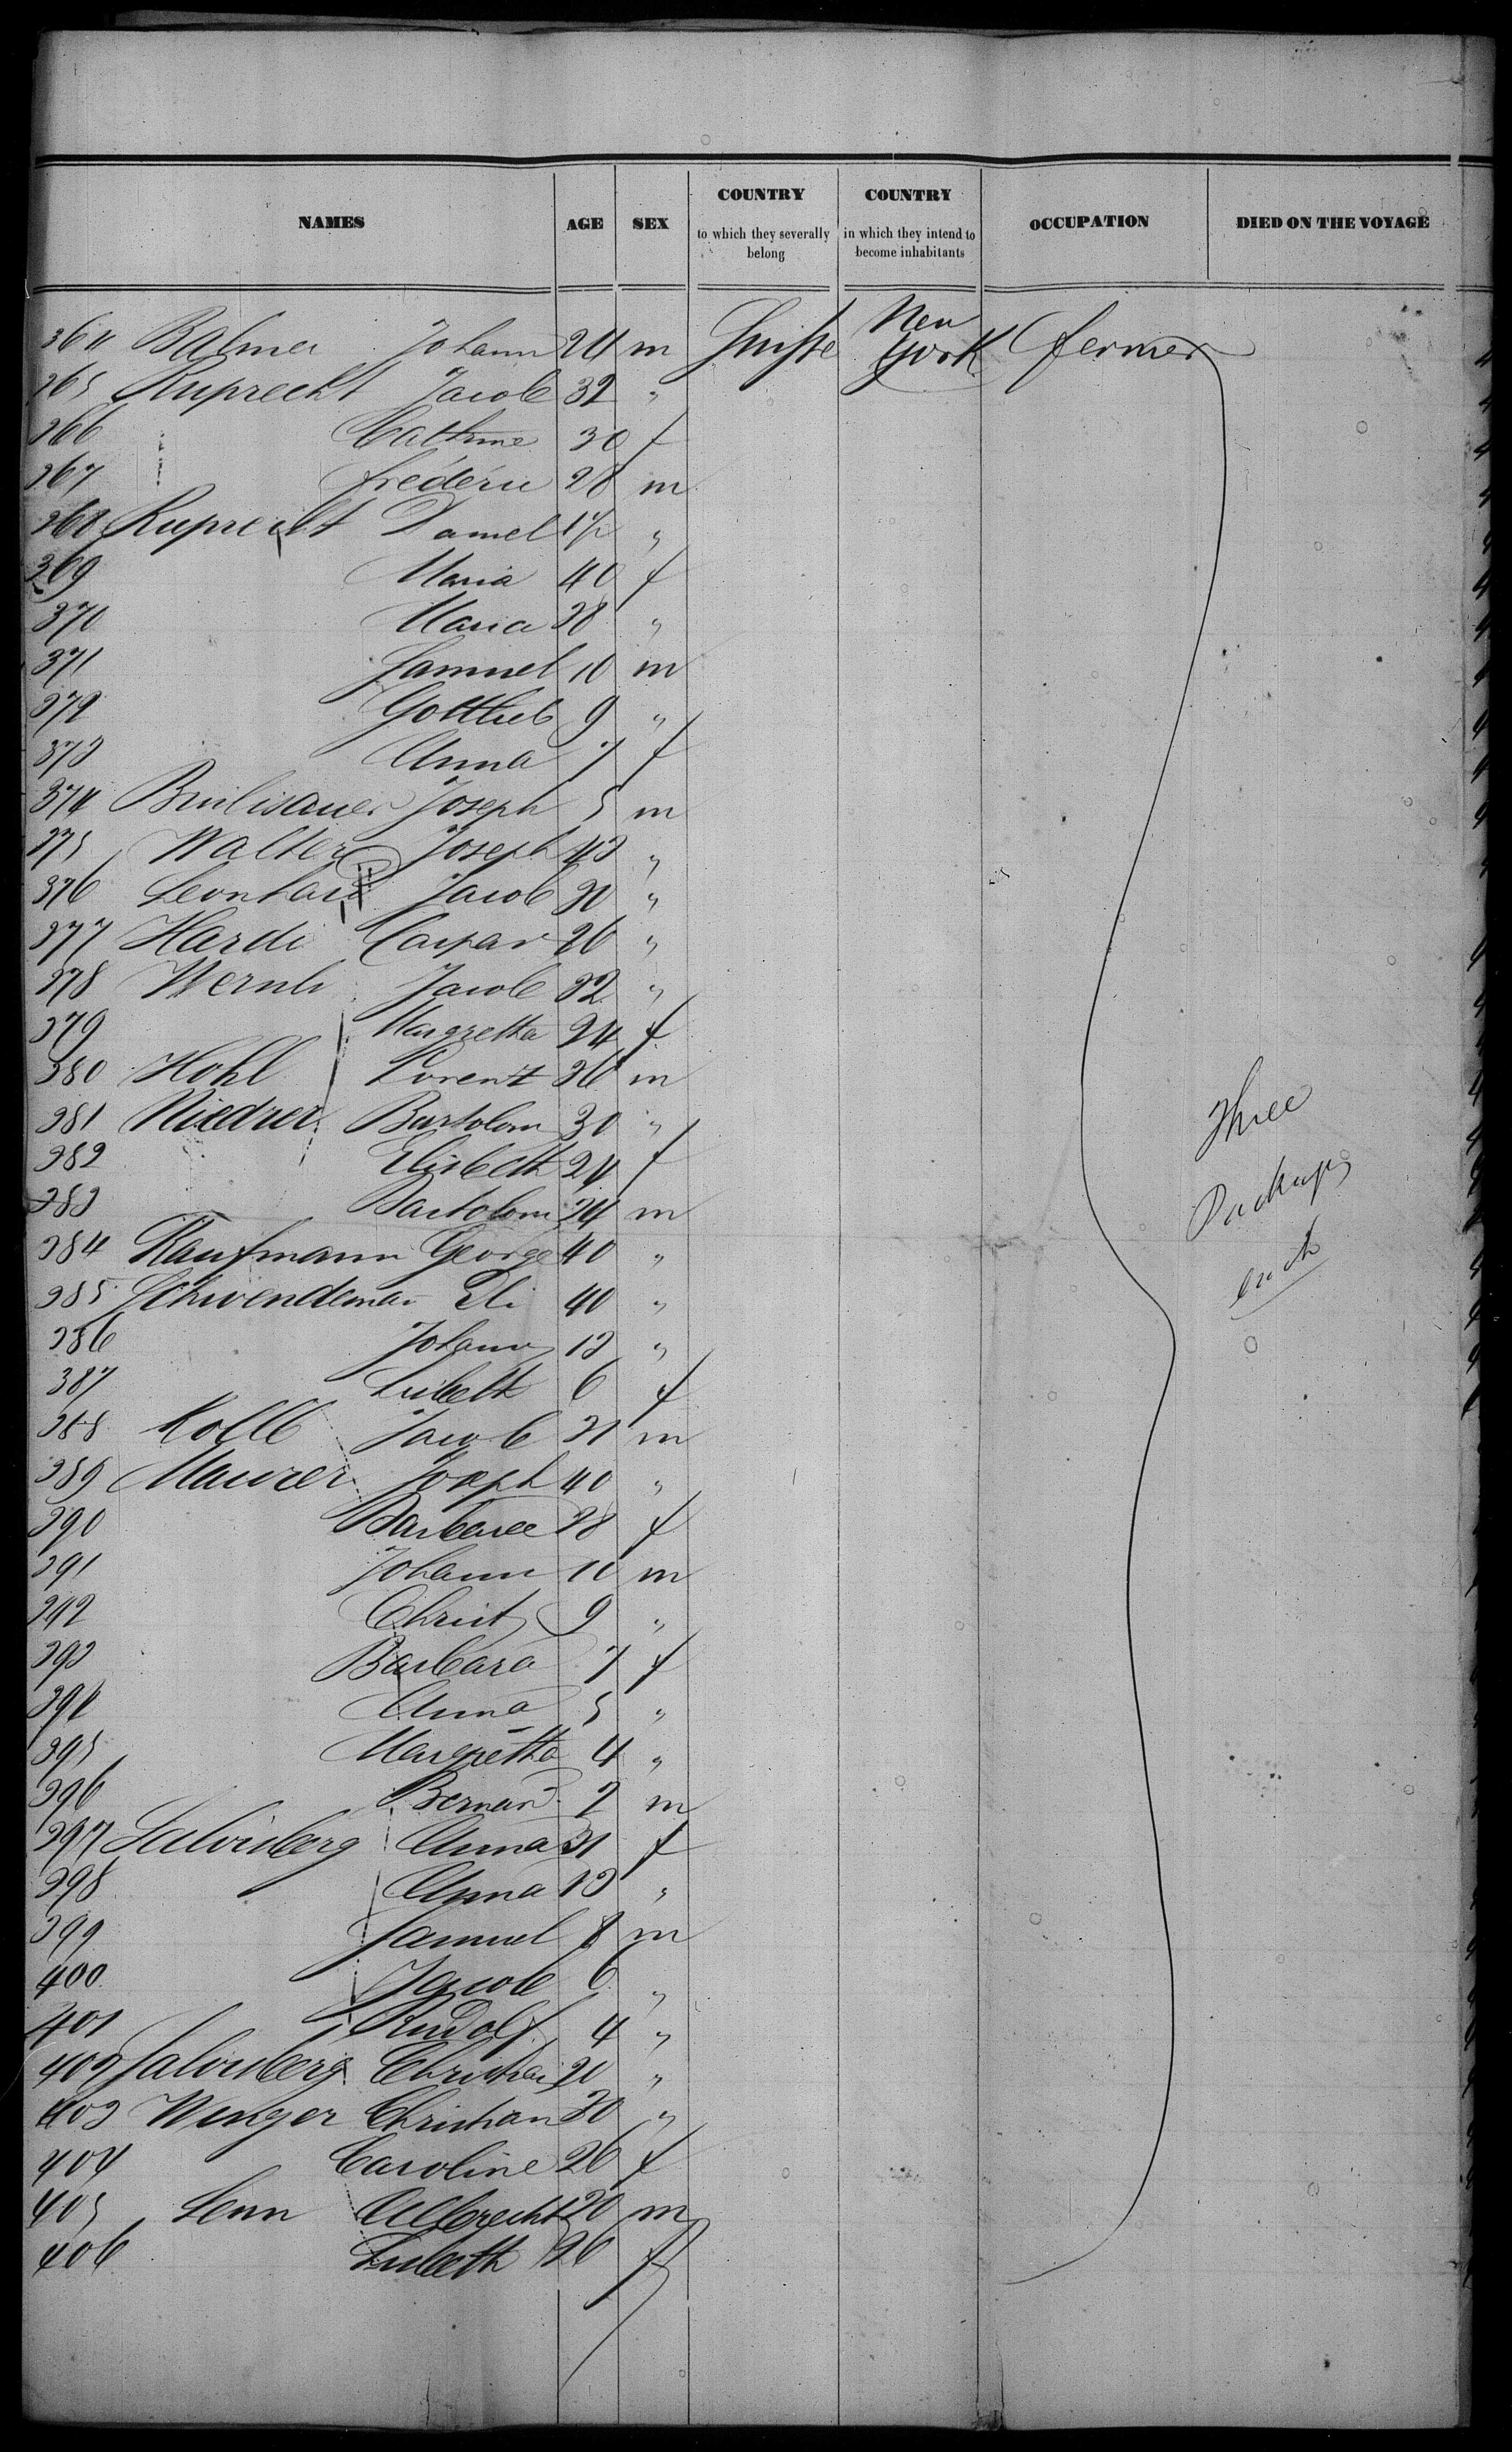 NAMES AGE SEX COUNTRY to which they severally belong COUNTRY in which they intend to become inhabitants OCCUPATION DIED ON THE VOYAGE
364 Balmer Johann 24 m Suisse New York fermer
365 Ruprecht Jacob 32 "
366 " Cathrine 30 f
367 " frédéric 28 m
368 Ruprecht Daniel 1 1/2 "
369 Maria 40 f
370 Maria 38 "
371 Samuel 10 m
372 Gottlieb 9 "
373 Anna 7 f
374 Brulisauer Joseph 5 m
375 Walter Joseph 43 "
376 Leonhard Jacob 30 "
377 Hardi Caspar 26 "
378 Wernli Jacob 32 "
379 Margretha 24 f
380 Hohl Lorenz 36 m
381 Niedrer Bartolom 30 "
382 Elisbeth 24 f
383 Bartolom 24 m
384 Kaufmann George 40 "
385 Schwendeman Eli 40 "
386 Johann 13 "
387 Lisbeth 6 f
388 Kolb Jacob 31 m
389 Maurer Joseph 40 "
390 Barbara 38 f
391 Johann 10 m
392 Christ 9 "
393 Barbara 7 f
394 Anna 5 "
395 Margretha 4 "
396 Bernard 2 m
397 Salvisberg Anna 31 f
398 Anna 13 "
399 Samuel 8 m
400 Jacob 6 "
401 Rudolf 4 "
402 Salvisberg Christian 20 "
403 Wenger Christian 30 "
404 Caroline 26 f
405 Senn Albrecht 20 m
406 Lisbeth 26 f
Three
Packages
each